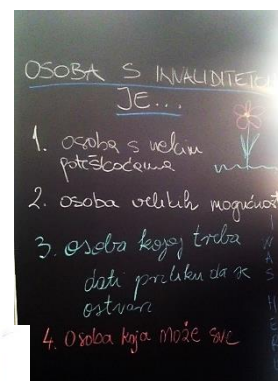 OSOBA S INVALIDITETOM
JE...
1. osoba s nekim
poteškoćama
2. osoba velikih mogućnosti
3. osoba kojoj treba
dati priliku da se
ostvari
4. Osoba koja može sve
I
W
A
S
H
E
R